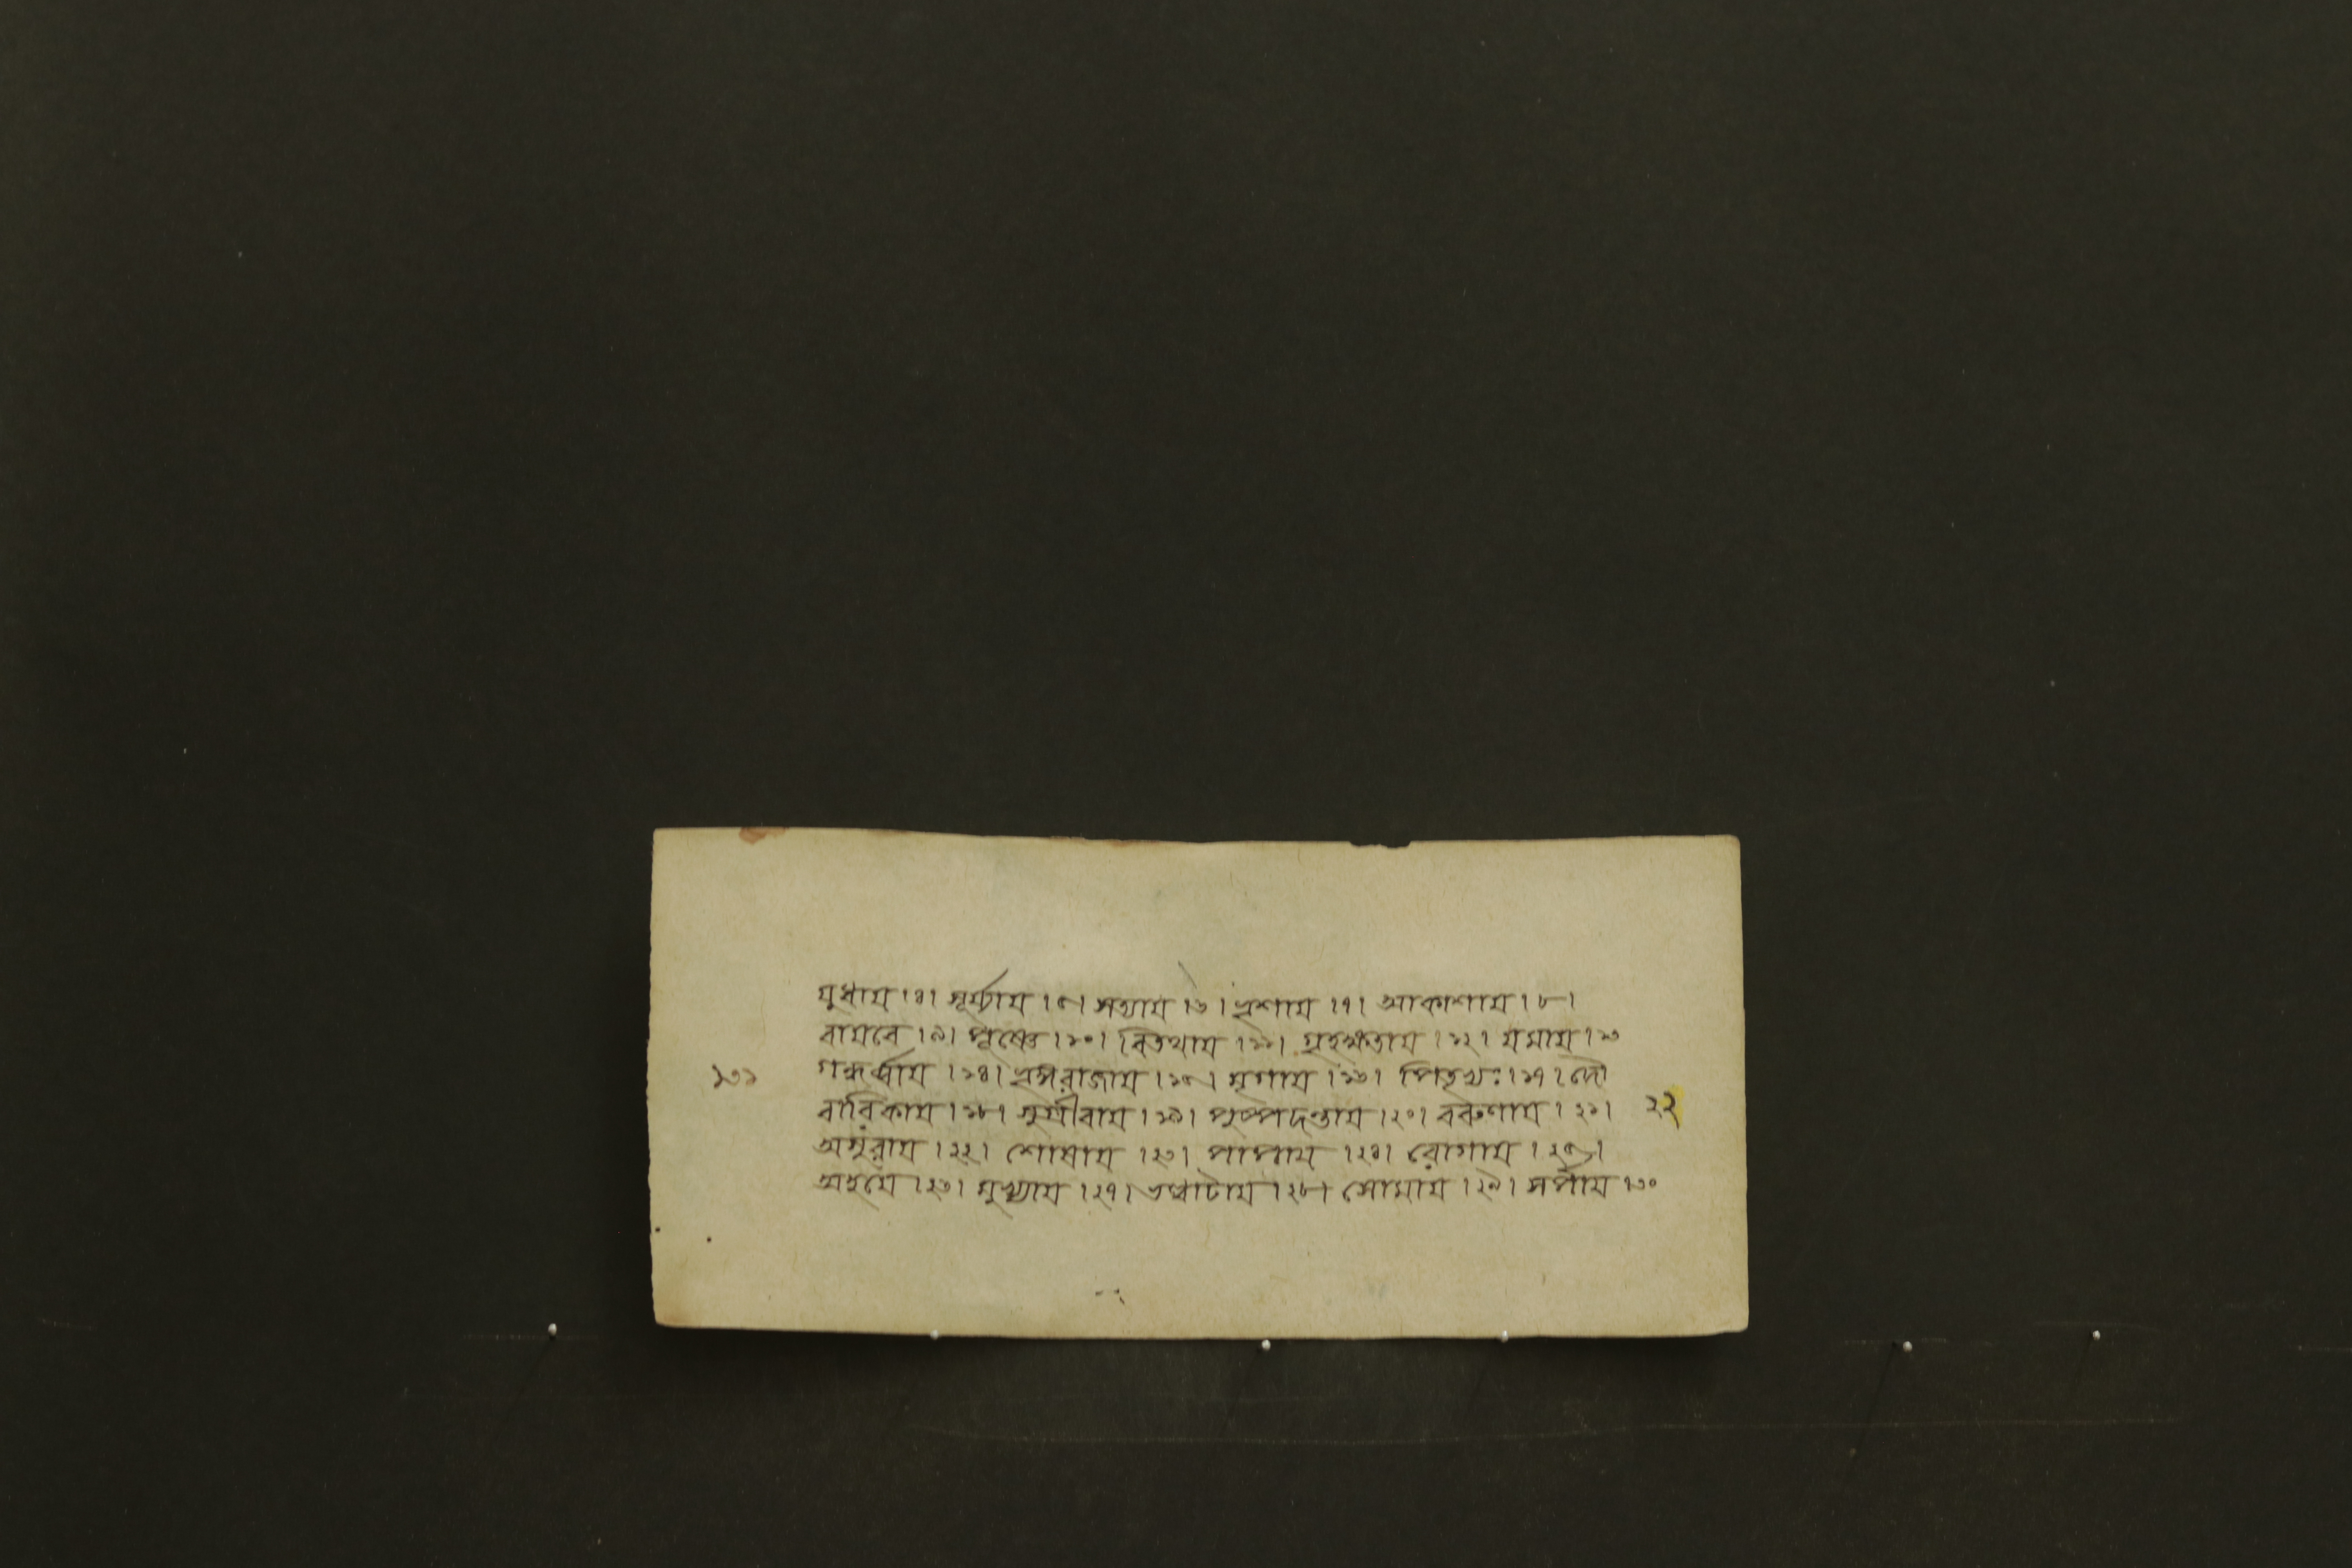 যুধায় ।৪। সূর্য্যায় ।৫। সত্যায় ।৬। ভ্রশায় ।৭। আকাশায় ।৮।
বায়বে ।৯। পূষ্ণে ।১০। বিতথায় ।১১। গৃহক্ষতায় ।১২। যমায় ।১৩
১৩১ গন্ধর্ব্বায় ।১৪। ভৃঙ্গরাজায় ।১৫। মৃগায় ।১৬। পিতৃভ্যঃ ।১৭। দৌ
বারিকায় ।১৮। সুগ্রীবায় ।১৯। পুষ্পদন্তায় ।২০। বরুণায় ।২১। ২২
অসুরায় ।২২। শোষায় ।২৩। পাপায় ।২৪। রোগায় ।২৫।
।২৬। মুখ্যায় ।২৭। ।২৮। সোমায় ।২৯। সর্পায় ।৩০